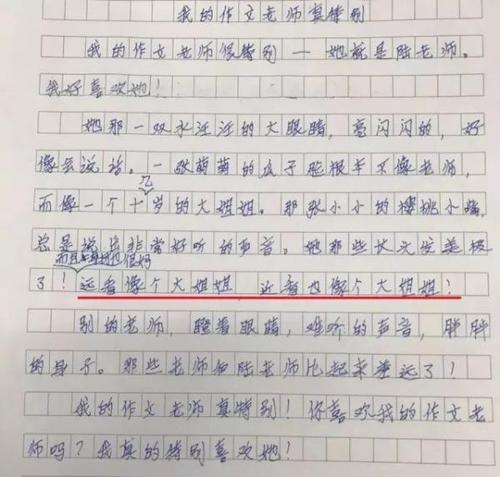 我的作文老师真特别
我的作文老师很特别—她就是陆老师。
我好喜欢她！
她那一双水汪汪的大眼睛，亮闪闪的，好
像会说话。一张萌萌的瓜子脸根本不像老师，
几
而像一个十岁的大姐姐。那张小小的樱桃小嘴，
总是说出非常好听的声音。她那些长头发美极
而且身材也很好
了！远看像个大姐姐，近看也像个大姐姐！
别的老师，瞪着眼睛，难听的声音，胖胖
的身子。那些老师和陆老师比起来差远了！
我的作文老师真特别！你喜欢我的作文老
师吗？我真的特别喜欢她！